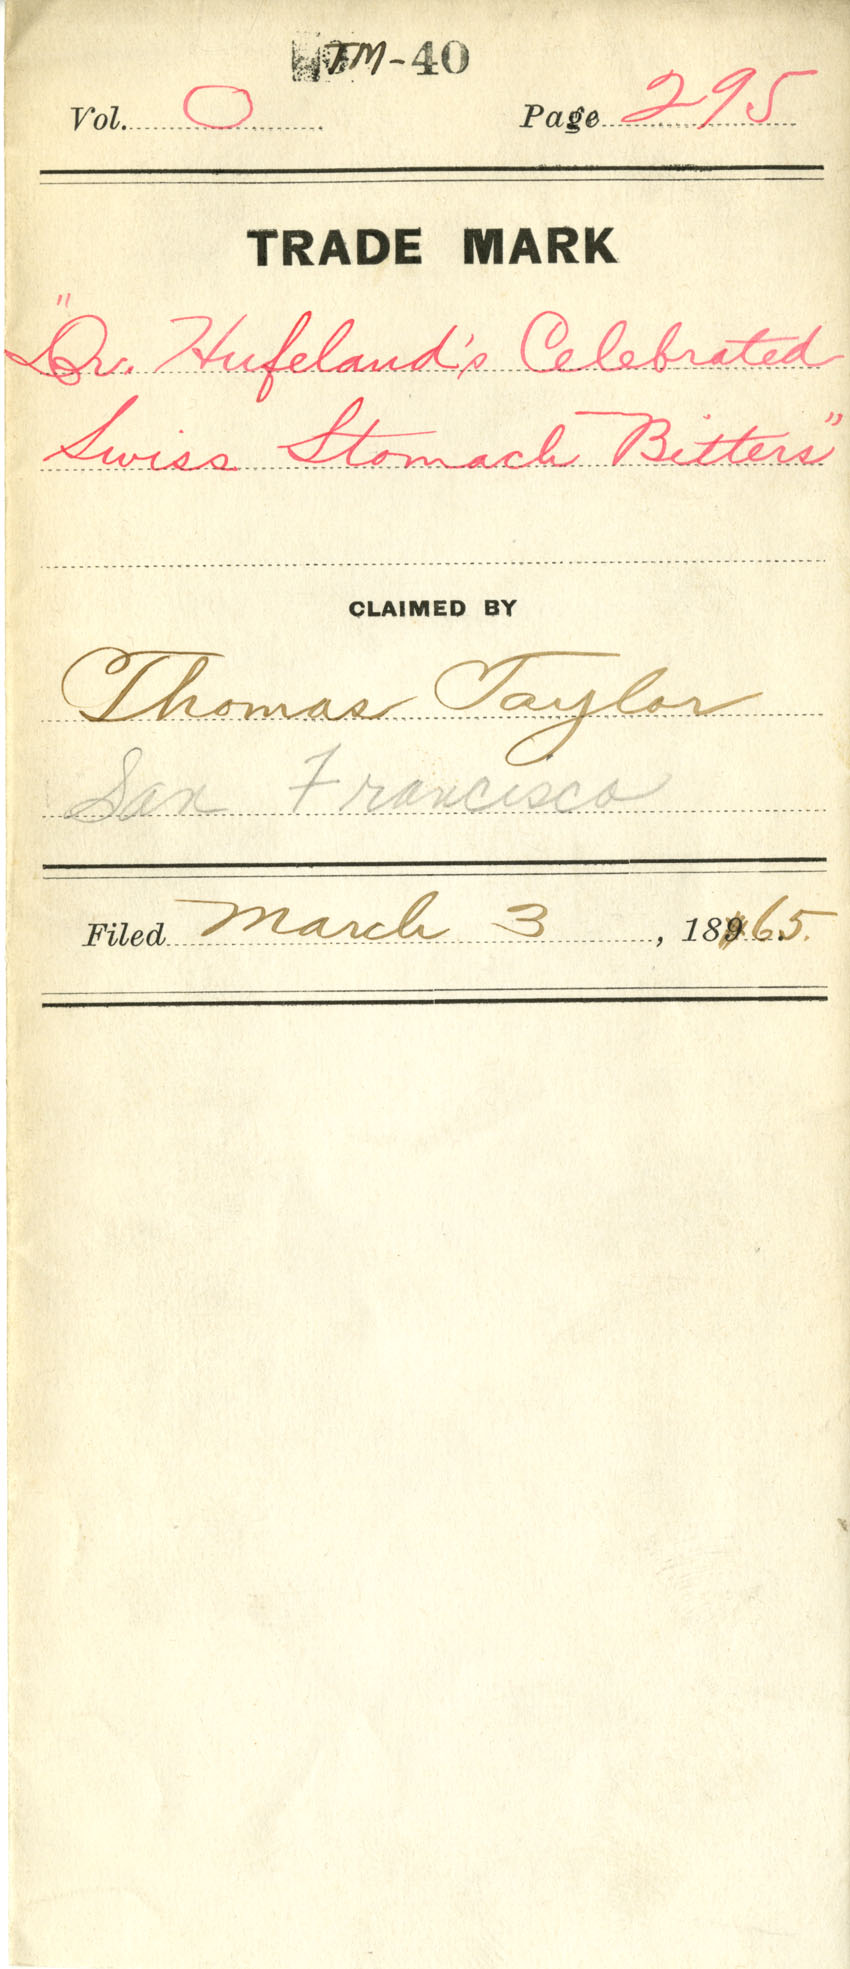 TM-40
Vol. O Page 295
TRADE MARK
"Dr. Hufeland's Celebrated
Swiss Stomach Bitters"
CLAIMED BY
Thomas Taylor
San Francisco
Filed March 3, 1865.